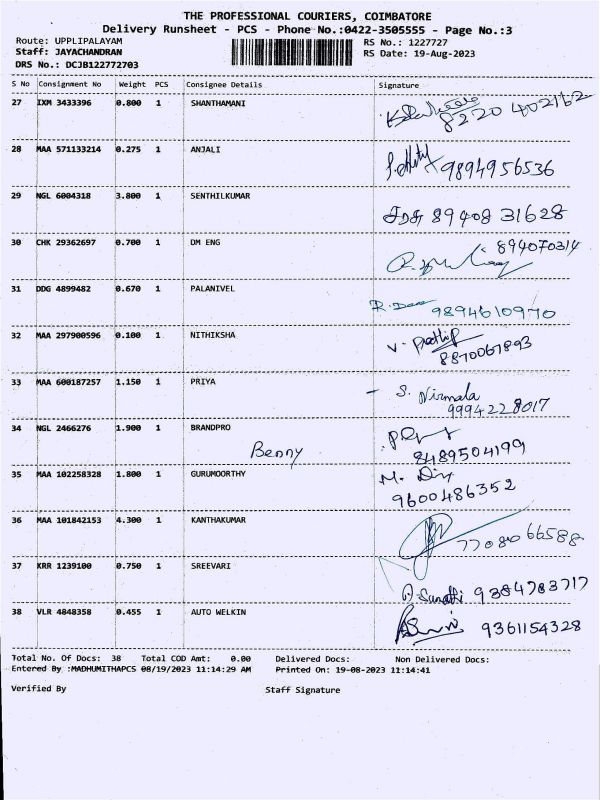 THE PROFESSIONAL COURIERS, COIMBATORE
Delivery Runsheet - PCS - Phone No.:0422-3505555 - Page No.:3
Route: UPPLIPALAYAM RS No.: 1227727
Staff: JAYACHANDRAN RS Date: 19-Aug-2023
DRS No.: DCJB122772703
S No Consignment No Weight PCS Consignee Details Signature
27 IXM 3433396 0.800 1 SHANTHAMANI
8220 402162
28 MAA 571133214 0.275 1 ANJALI
9894956536
29 NGL 6004318 3.800 1 SENTHILKUMAR
89408 31628
30 CHK 29362697 0.700 1 DM ENG
894070314
31 DDG 4899482 0.670 1 PALANIVEL
9894610970
32 MAA 297900596 0.100 1 NITHIKSHA
8870067893
33 MAA 600187257 1.150 1 PRIYA
S. Nirmala
9994228017
34 NGL 2466276 1.900 1 BRANDPRO
Benny
8489504199
35 MAA 102258328 1.800 1 GURUMOORTHY
9600486352
36 MAA 101842153 4.300 1 KANTHAKUMAR
7708066588
37 KRR 1239100 0.750 1 SREEVARI
9384783717
38 VLR 4848358 0.455 1 AUTO WELKIN
9361154328
Total No. Of Docs: 38 Total COD Amt: 0.00 Delivered Docs: Non Delivered Docs:
Entered By :MADHUMITHAPCS 08/19/2023 11:14:29 AM Printed On: 19-08-2023 11:14:41
Verified By Staff Signature